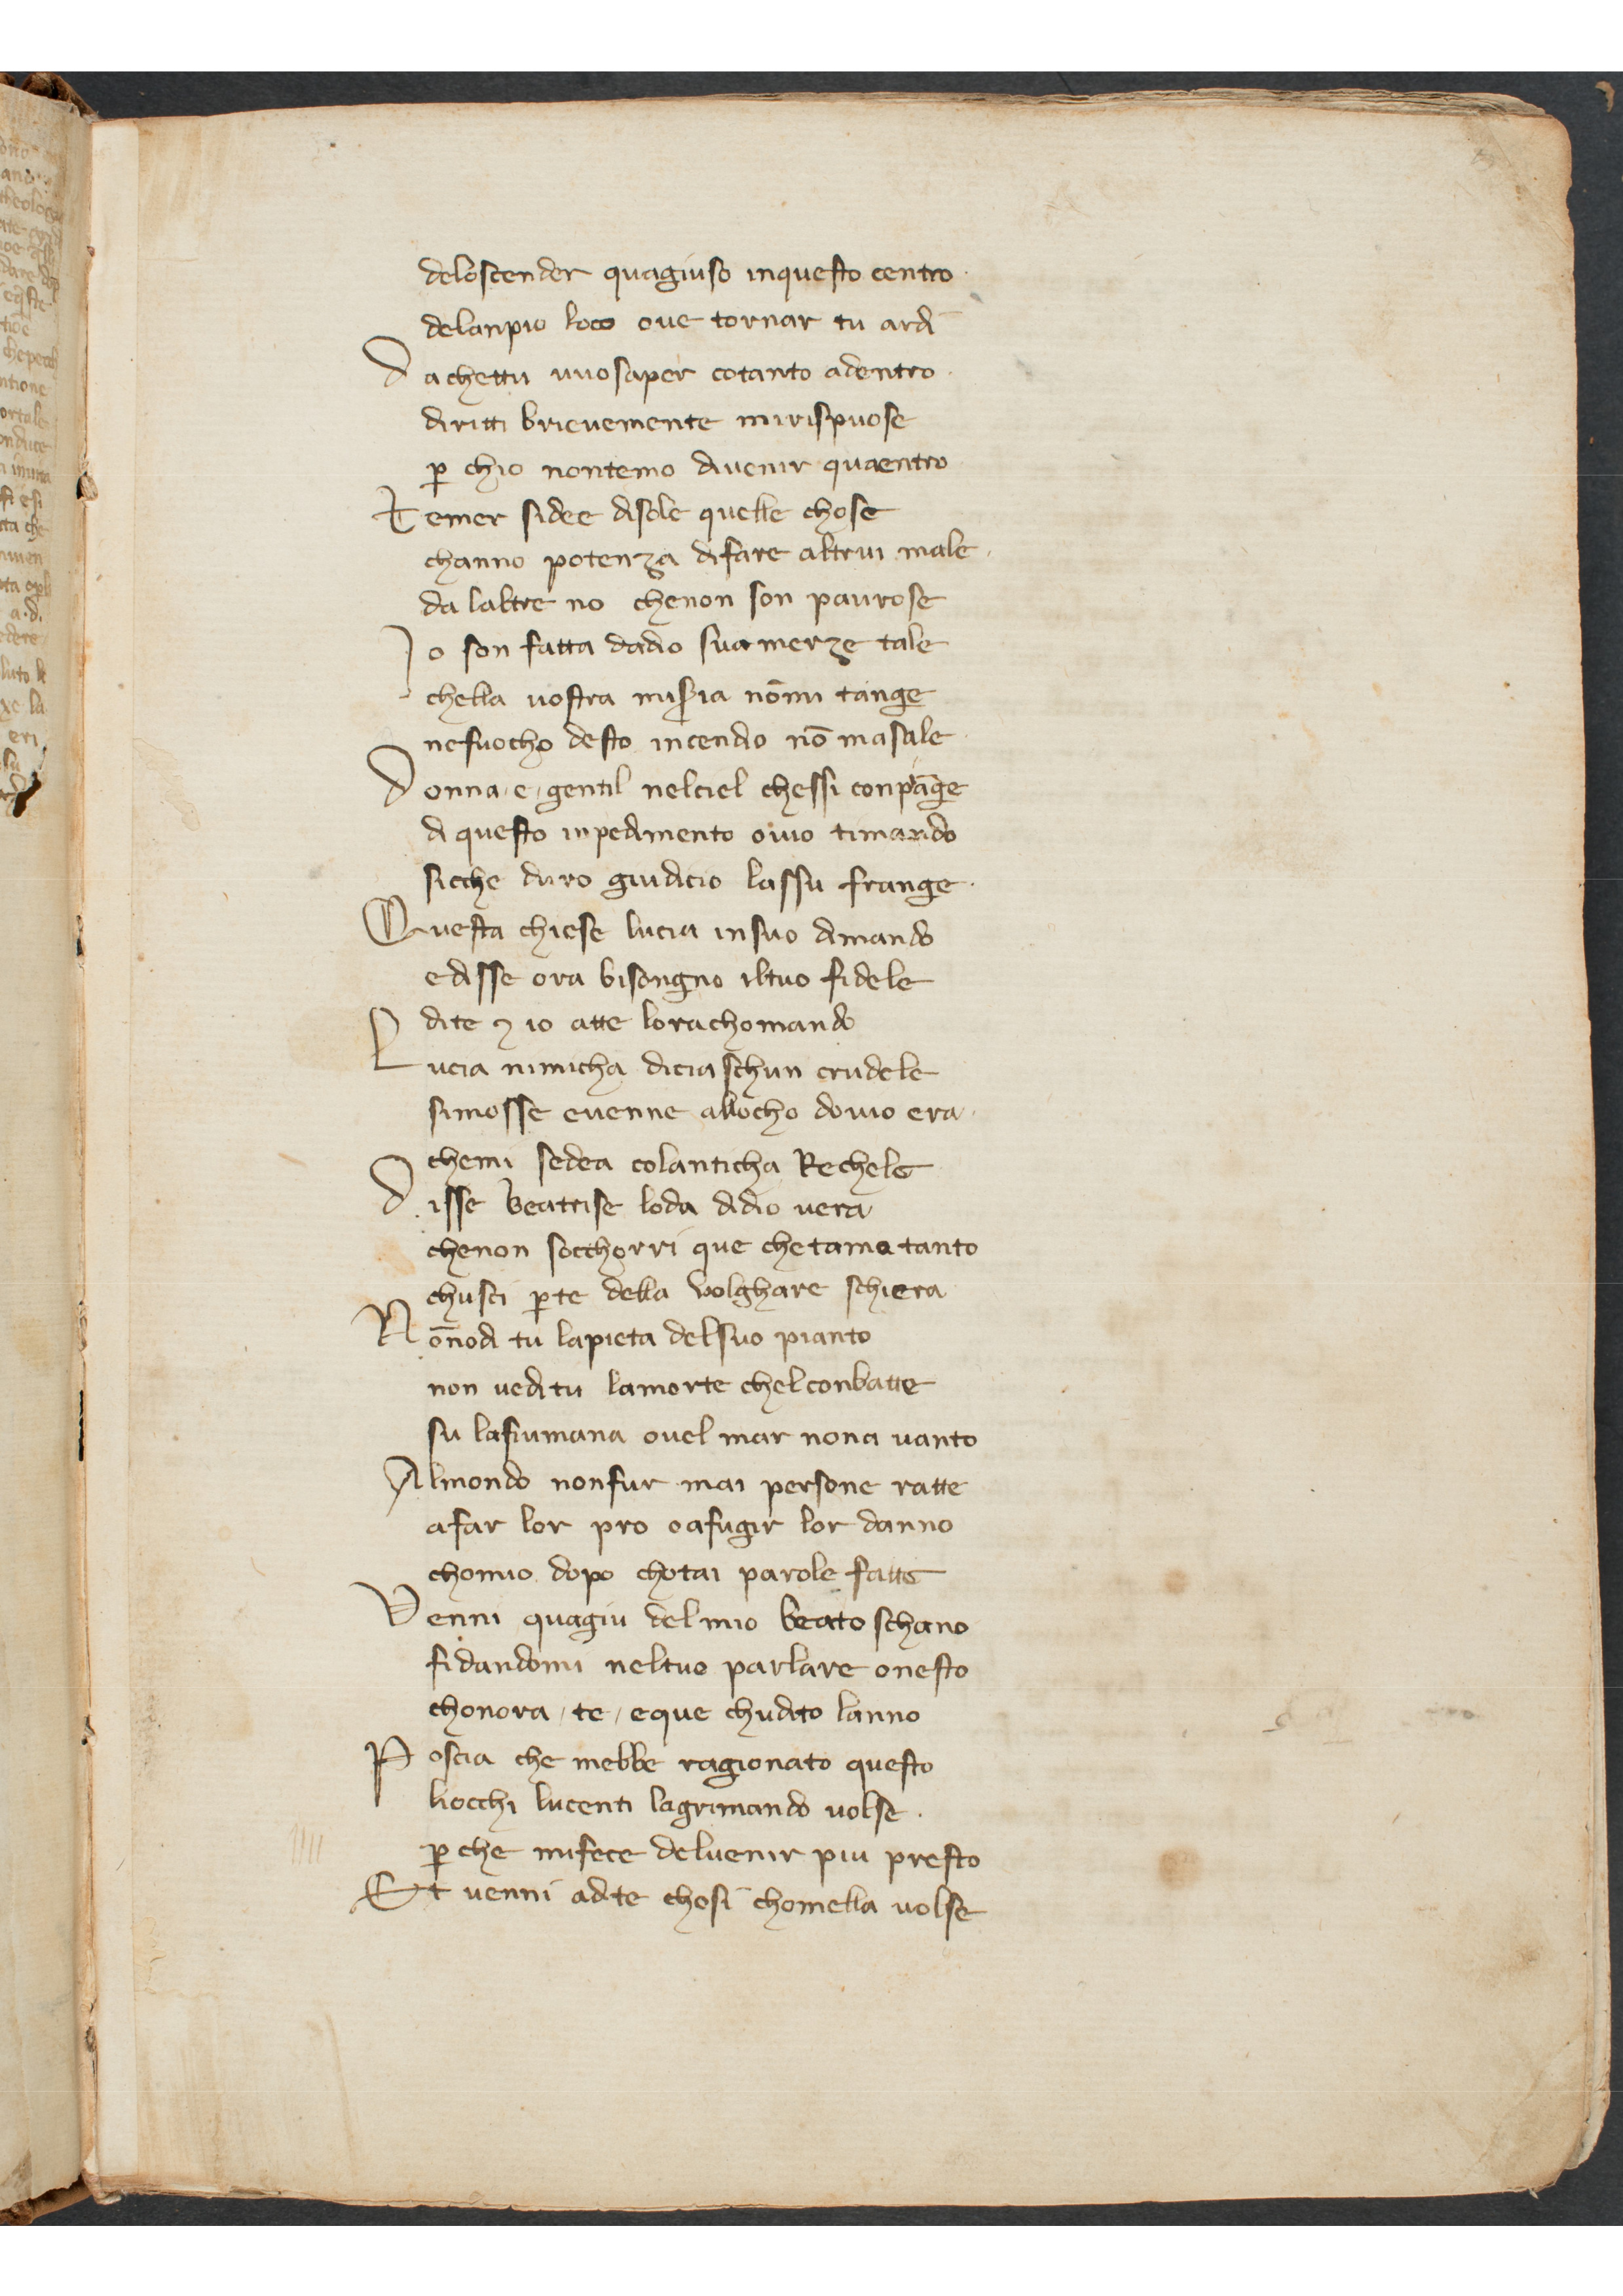 deloscender quagiuso inquesto centro
delanpio loco oue tornar tu ardi
Da chettu uuosaper cotanto adentro
diritti brieuemente mirispuose
p̱ chio nontemo diuenir quaentro
Temer sidee disole quelle chose
channo potenza difare altrui male
da laltre no chenon son paurose
Io son fatta dadio sua merze tale
chella uostra miṣia nōmi tange
nefuocho desto incendio nō masale
Donna / e / gentil nelciel chessi conpāge
di questo inpedimento ouio timando
sicche duro giudicio lassu frange
Questa chiese lucia insuo dimando
edisse ora bisongno iltuo fidele
dite ⁊ io atte lorachomando
Lucia nimicha diciaschun crudele
simosse euenne allocho douio era
chemi sedea colanticha Rechele
Disse beatrise loda didio uera
chenon socchorri que chetama tanto
chusci p̱te della volghare schiera
Nōnodi tu lapieta delsuo pianto
non uedi tu lamorte chelconbatte
su lafiumana ouel mar nona uanto
Almondo nonfur mai persone ratte
afar lor pro oafugir lor danno
chomio dopo chotai parole fatte
Venni quagiu del mio beato schano
fidandomi neltuo parlare onesto
chonora / te / eque chudito lanno
Poscia che mebbe ragionato questo
liocchi lucenti lagrimando uolse
p̱ che mifece deluenir piu presto
Et uenni adte chosi chomella uolse